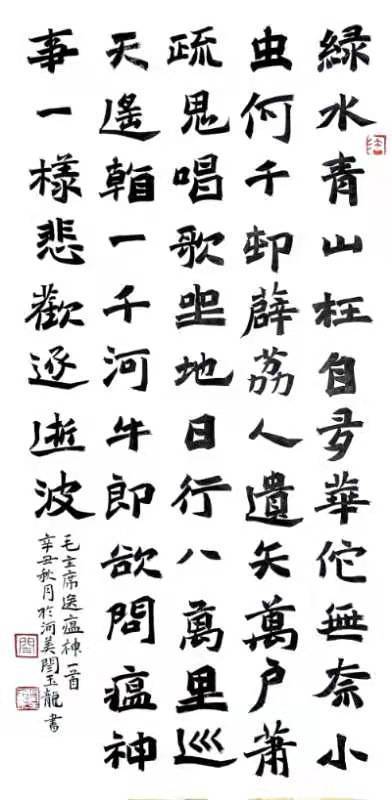 綠水青山枉自多華佗無奈小
虫何千邨薜荔人遺矢萬户蕭
疏鬼唱歌坐地日行八萬里巡
天遙看一千河牛郎欲問瘟神
事一樣悲歡逐逝波
毛主席送瘟神一首
辛丑秋月於河美閆玉龍書